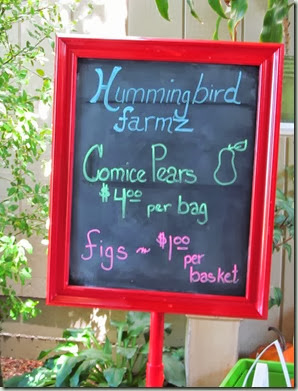 Hummingbird
farmz
Comice Pears
$4.00 per bag
figs ~ $1.00
per
basket